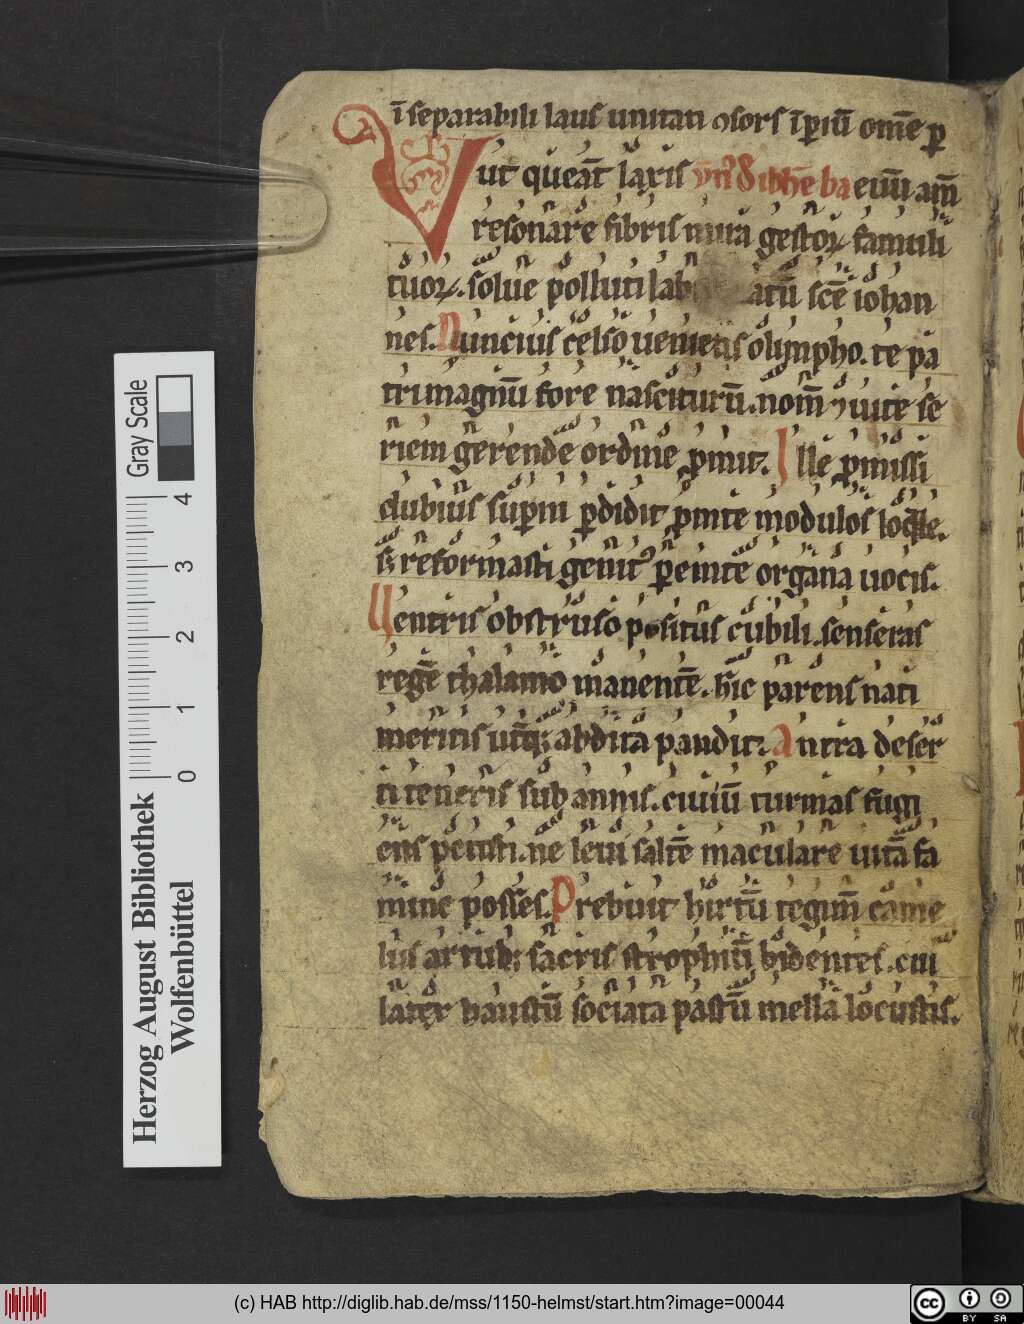 ī separabili laus unitati ꝯsors īꝑiū om̄e ꝑ
Vut queāt laxis euū am̄
resonare fibris mira gestoꝝ famuli
tuoꝝ. solue polluti lab atū scē iohan
nes. Nuncius celso ueniens olimpho. te pa
tri magnū fore nasciturū. nom̄ ⁊ uite se
riem gerende ordine ꝓmit. Ille ꝓmissi
dubius suꝑni ꝑdidit ꝓmte modulos loq̄le.
s; reformasti genitꝰ ꝑemte organa uocis.
Uentris obstruso positus cubili. senseras
regē thalamo manentē. hīc parens nati
meritis utq; abdita pandit. Antra deser
ti teneris sub annis. ciuiū turmas fugi
ens petisti. ne leui saltē maculare uitā fa
mine posses. Prebuit hirtū tegim̄ came
lus artub; sacris strophiū bidentes. cui
latex haustū sociata pastū mella locustis.
Gray Scale
4
3
2
1
0
Herzog August Bibliothek
Wolfenbüttel
(c) HAB http://diglib.hab.de/mss/1150-helmst/start.htm?image=00044
cc BY SA